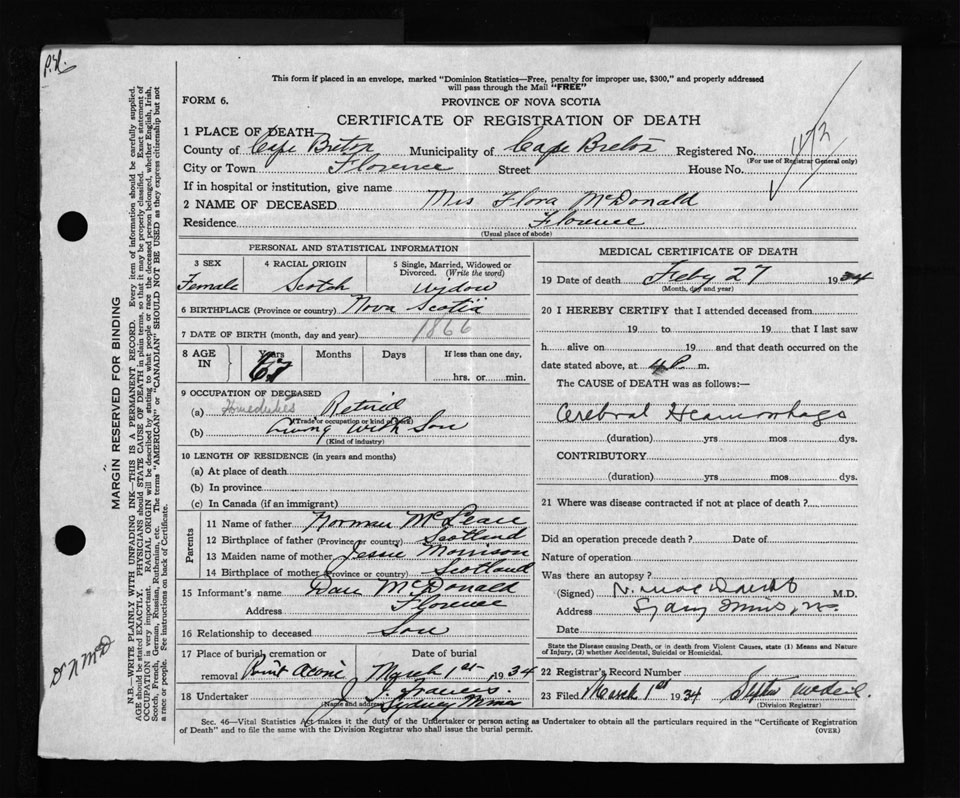 P.N.
This form if placed in an envelope, marked "Dominion Statistics—Free, penalty for improper use, $300," and properly addressed
will pass through the Mail "FREE"
FORM 6.
PROVINCE OF NOVA SCOTIA
CERTIFICATE OF REGISTRATION OF DEATH
1 PLACE OF DEATH
County of Cape Breton Municipality of Cape Breton Registered No.
(For use of Registrar General only)
City or Town Florence Street House No.
If in hospital or institution, give name
2 NAME OF DECEASED Mrs Flora McDonald
Residence Florence
(Usual place of abode)
PERSONAL AND STATISTICAL INFORMATION
3 SEX 4 RACIAL ORIGIN 5 Single, Married, Widowed or
Divorced. (Write the word)
Female Scotch Widow
6 BIRTHPLACE (Province or country) Nova Scotia
7 DATE OF BIRTH (month, day and year) 1866
8 AGE IN Years Months Days If less than one day,
67 hrs. or min.
9 OCCUPATION OF DECEASED
(a) Homeduties Retired
(Trade or occupation or kind of work)
(b) Living with Son
(Kind of industry)
10 LENGTH OF RESIDENCE (in years and months)
(a) At place of death
(b) In province
(c) In Canada (if an immigrant)
Parents
11 Name of father Norman McLean
12 Birthplace of father (Province or country) Scotland
13 Maiden name of mother Jessie Morrison
14 Birthplace of mother (Province or country) Scotland
15 Informant's name Dan McDonald
Address Florence
16 Relationship to deceased Son
17 Place of burial, cremation or Date of burial
removal Point Aconi March 1st 1934
18 Undertaker J. J. Francis.
(Name and address) Sydney Mines
MEDICAL CERTIFICATE OF DEATH
19 Date of death Feby 27 1934
(Month, day and year)
20 I HEREBY CERTIFY that I attended deceased from
19 to 19 that I last saw
h alive on 19 and that death occurred on the
date stated above, at 4 P. m.
The CAUSE of DEATH was as follows:—
Cerebral Heamorrhage
(duration) yrs mos dys.
CONTRIBUTORY
(duration) yrs mos dys.
21 Where was disease contracted if not at place of death?
Did an operation precede death? Date of
Nature of operation
Was there an autopsy?
(Signed) M.D.
Address Sydney Mines, N.S.
Date
State the Disease causing Death, or in death from Violent Causes, state (1) Means and Nature
of Injury, (2) whether Accidental, Suicidal or Homicidal.
22 Registrar's Record Number
23 Filed March 1st 1934
(Division Registrar)
Sec. 46—Vital Statistics Act makes it the duty of the Undertaker or person acting as Undertaker to obtain all the particulars required in the "Certificate of Registration
of Death" and to file the same with the Division Registrar who shall issue the burial permit.
(OVER)
MARGIN RESERVED FOR BINDING
N.B.—WRITE PLAINLY WITH UNFADING INK—THIS IS A PERMANENT RECORD. Every item of information should be carefully supplied.
AGE should be stated EXACTLY. PHYSICIANS should STATE CAUSE OF DEATH in plain terms, so that it may be properly classified. Exact statement of
OCCUPATION is very important. RACIAL ORIGIN will be described by stating to what people or race the deceased person belonged, whether English, Irish,
Scotch, French, German, Russian, Ruthenian, etc. The terms "AMERICAN" or "CANADIAN" SHOULD NOT BE USED as they express citizenship but not
a race or people. See instructions on back of Certificate.